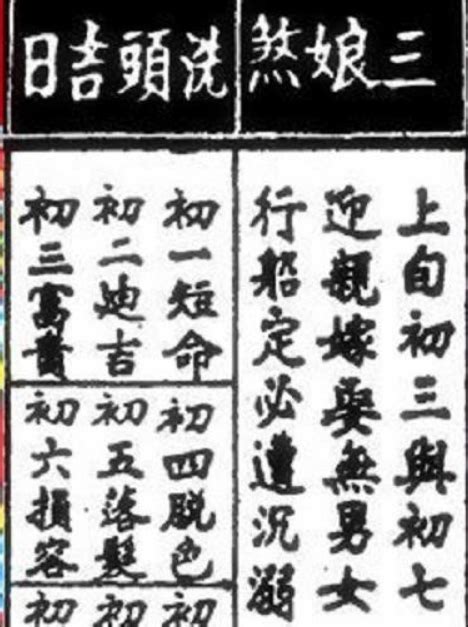 三娘煞
上旬初三與初七
迎親嫁娶無男女
行船定必遭沉溺
洗頭吉日
初一短命
初二迪吉
初三富貴
初四脱色
初五落髮
初六損容
初
初
初